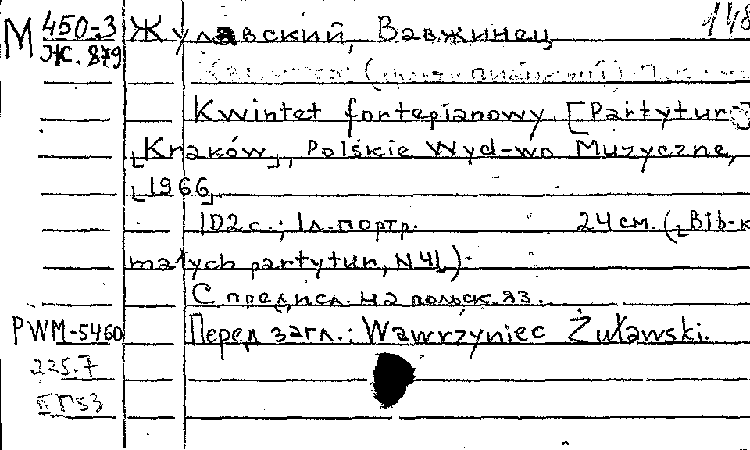 148
М 450-3 Жулавский, Вавжинец
Ж. 879
Kwintet fortepianowy [Partytur
[Kraków], Polskie Wyd-wo Muzyczne,
[1966]
102 с.; 1 л. портр. 24 см. ([Bib-к
małych partytur, N 41]).
С предисл. на польск. яз.
PWM-5460 Перед загл.: Wawrzyniec Żuławski.
225.7